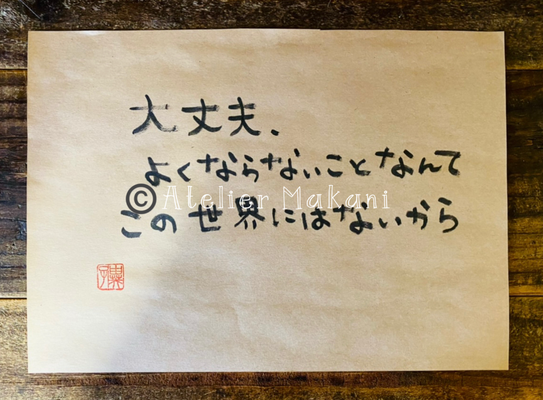 大丈夫、
よくならないことなんて
© Atelier Makani
この世界にはないから